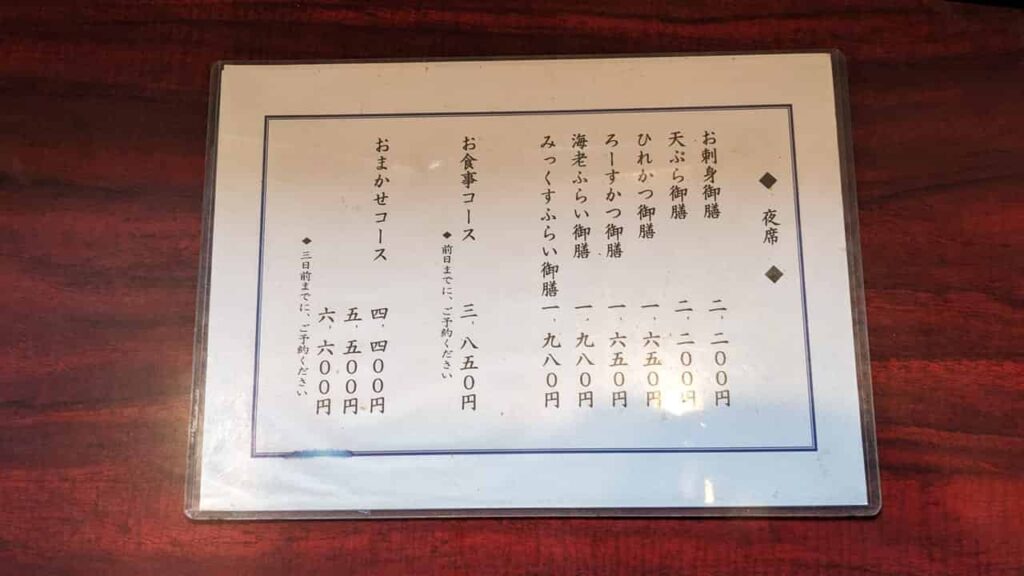 ◆ 夜席 ◆
お刺身御膳 二、二〇〇円
天ぷら御膳 二、二〇〇円
ひれかつ御膳 一、六五〇円
ろーすかつ御膳 一、六五〇円
海老ふらい御膳 一、九八〇円
みっくすふらい御膳 一、九八〇円
お食事コース 三、八五〇円
◆前日までに、ご予約ください
おまかせコース 四、四〇〇円
五、五〇〇円
六、六〇〇円
◆三日前までに、ご予約ください